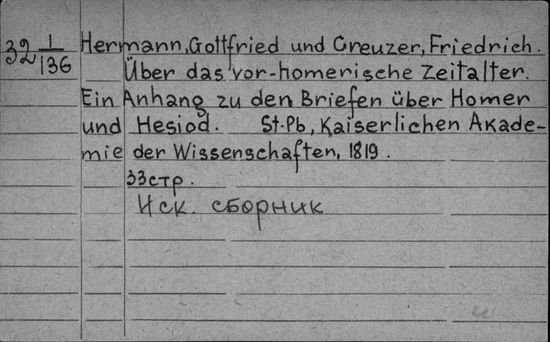 32 1/136
Hermann, Gottfried und Creuzer, Friedrich.
Über das vor-homerische Zeitalter.
Ein Anhang zu den Briefen über Homer
und Hesiod. St-Pb, Kaiserlichen Akade-
mie der Wissenschaften, 1819.
33стр.
Иск. сборник